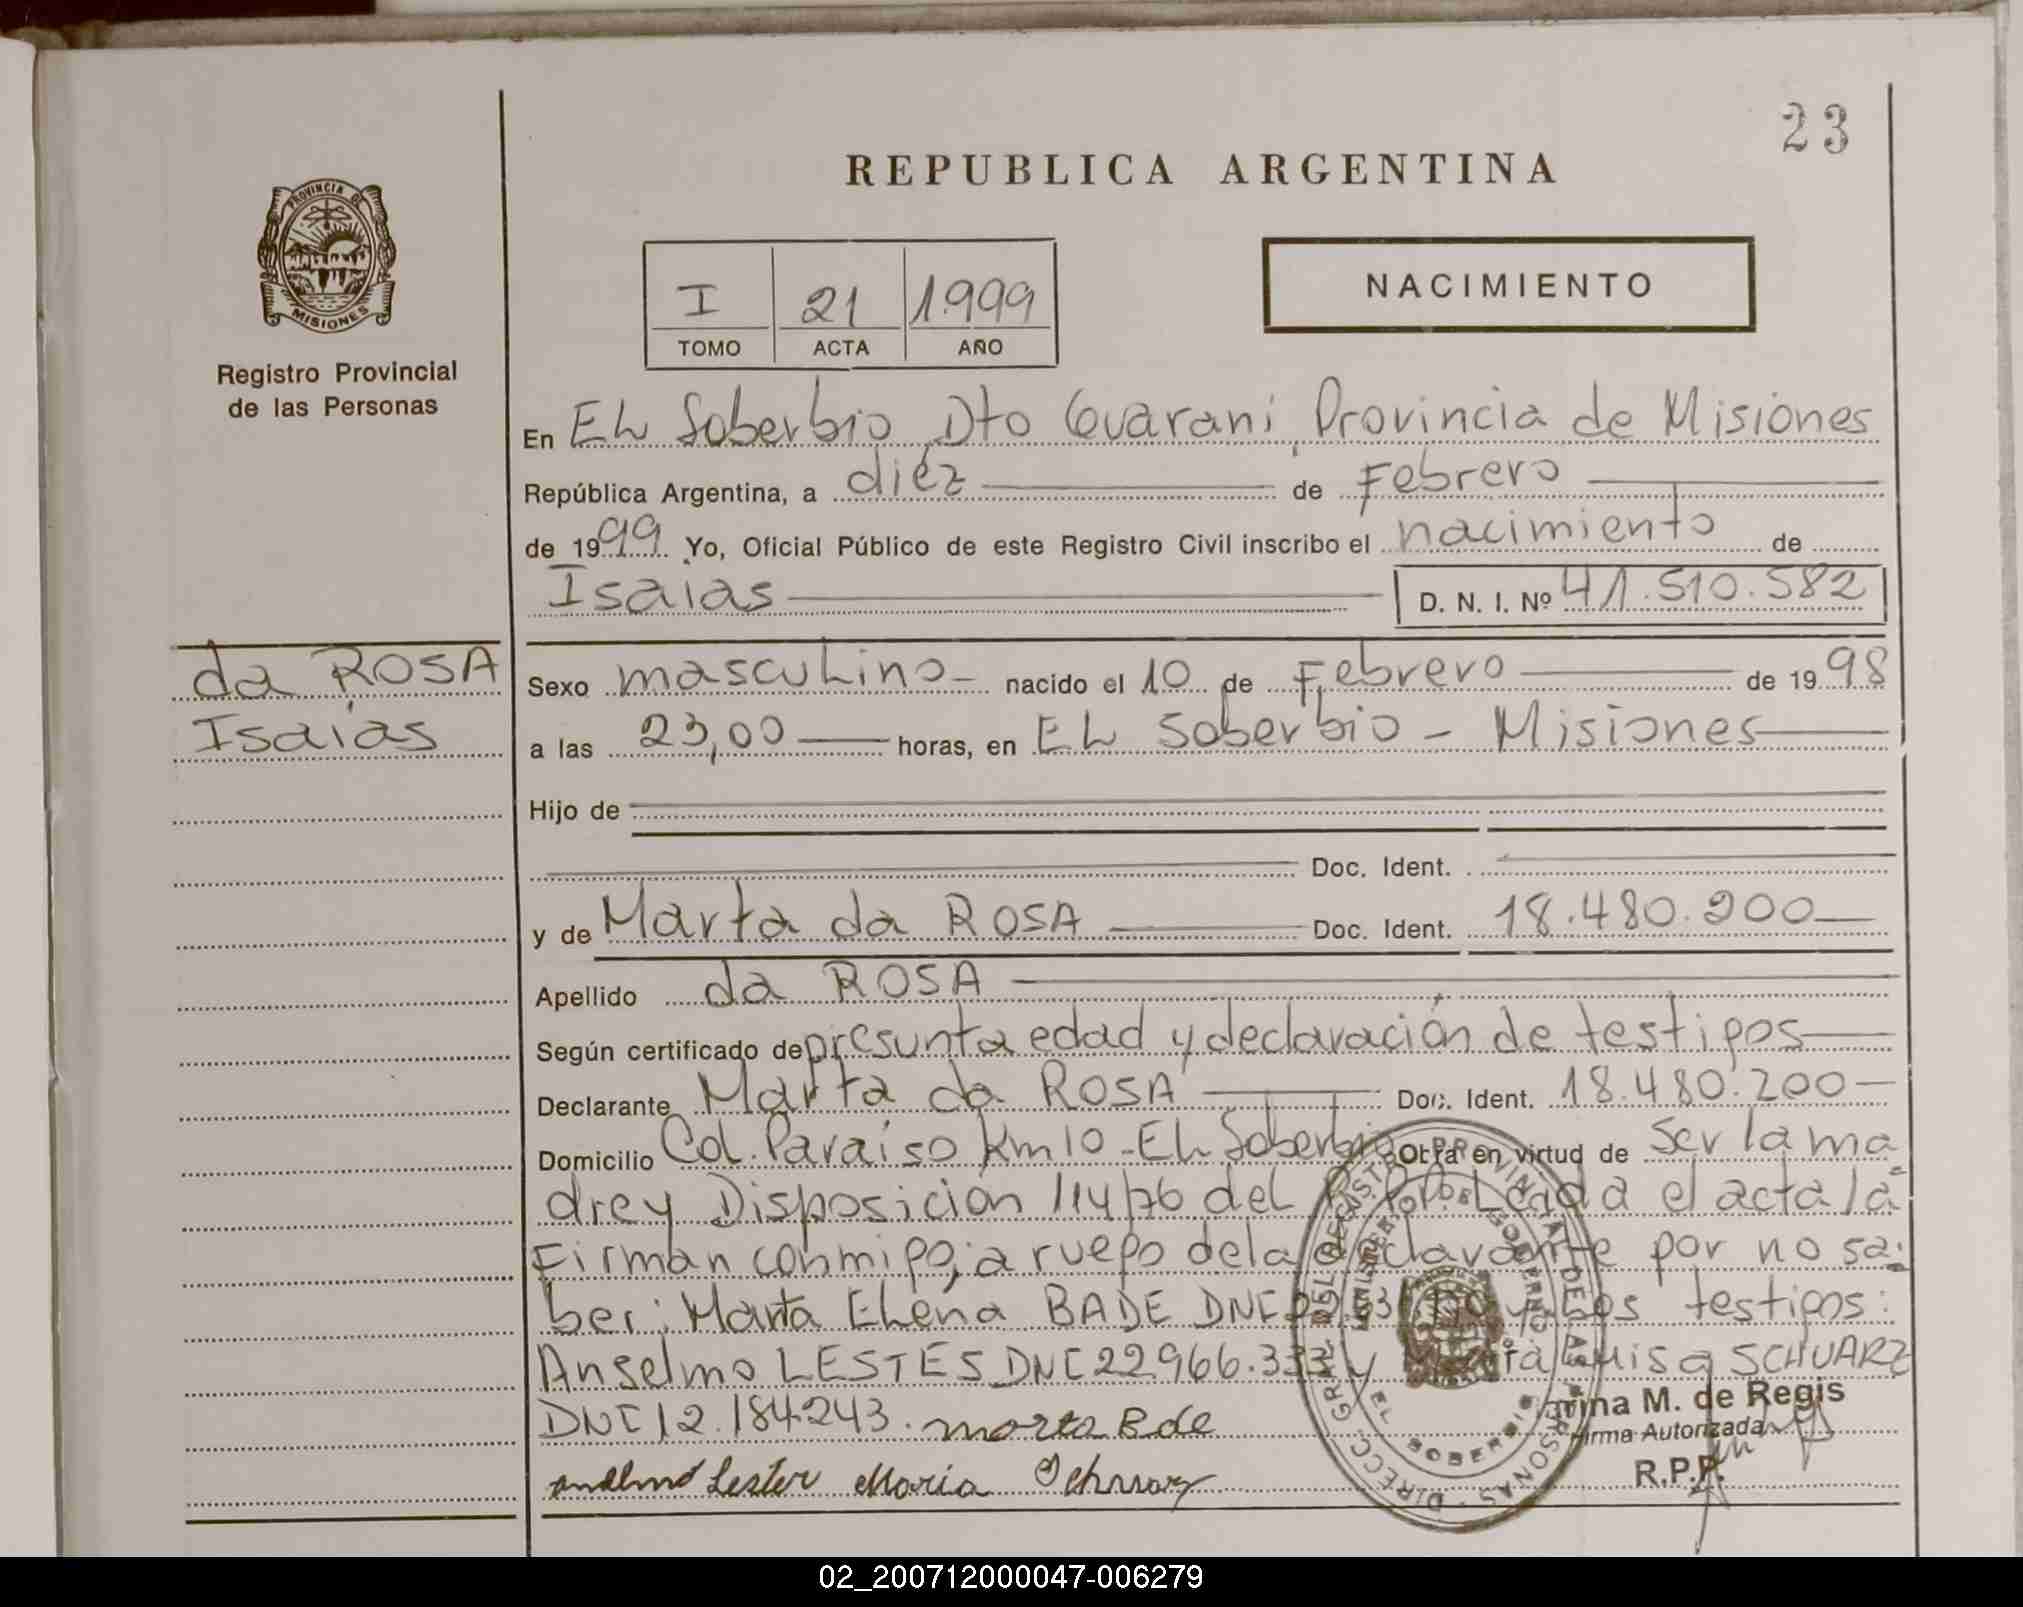 23
REPUBLICA ARGENTINA
PROVINCIA DE
MISIONES
Registro Provincial
de las Personas
NACIMIENTO
I 21 1.999
TOMO ACTA AÑO
En EL Soberbio, Dto Guarani, Provincia de Misiones
República Argentina, a diéz de Febrero
de 1999. Yo, Oficial Público de este Registro Civil inscribo el nacimiento de
Isaias D. N. I. Nº 41.510.582
da ROSA
Isaias
Sexo masculino nacido el 10 de Febrero de 1998
a las 23,00 horas, en EL Soberbio - Misiones
Hijo de
Doc. Ident.
y de Marta da ROSA Doc. Ident. 18.480.200
Apellido da ROSA
Según certificado de presunta edad y declaración de testigos
Declarante Marta da ROSA Doc. Ident. 18.480.200
Domicilio Col. Paraiso Km 10 - EL Soberbio Obra en virtud de Ser la ma
dre y Disposición 114/76 del Leada el acta la
Firman conmigo; a ruego de la declarante por no sa-
ber: Marta Elena BADE DNI y Los testigos:
Anselmo LESTES DNI 22966.333 y Maria Luisa SCHUARZ
DNI 12.184243. Marta Bde
Lester Maria
DIRECC. GRAL. DEL REGISTRO PROVINCIAL DE LAS PERSONAS
MINISTERIO DE GOBIERNO
EL SOBERBIO
M. de Regis
Firma Autorizada
R.P.P.
02_200712000047-006279